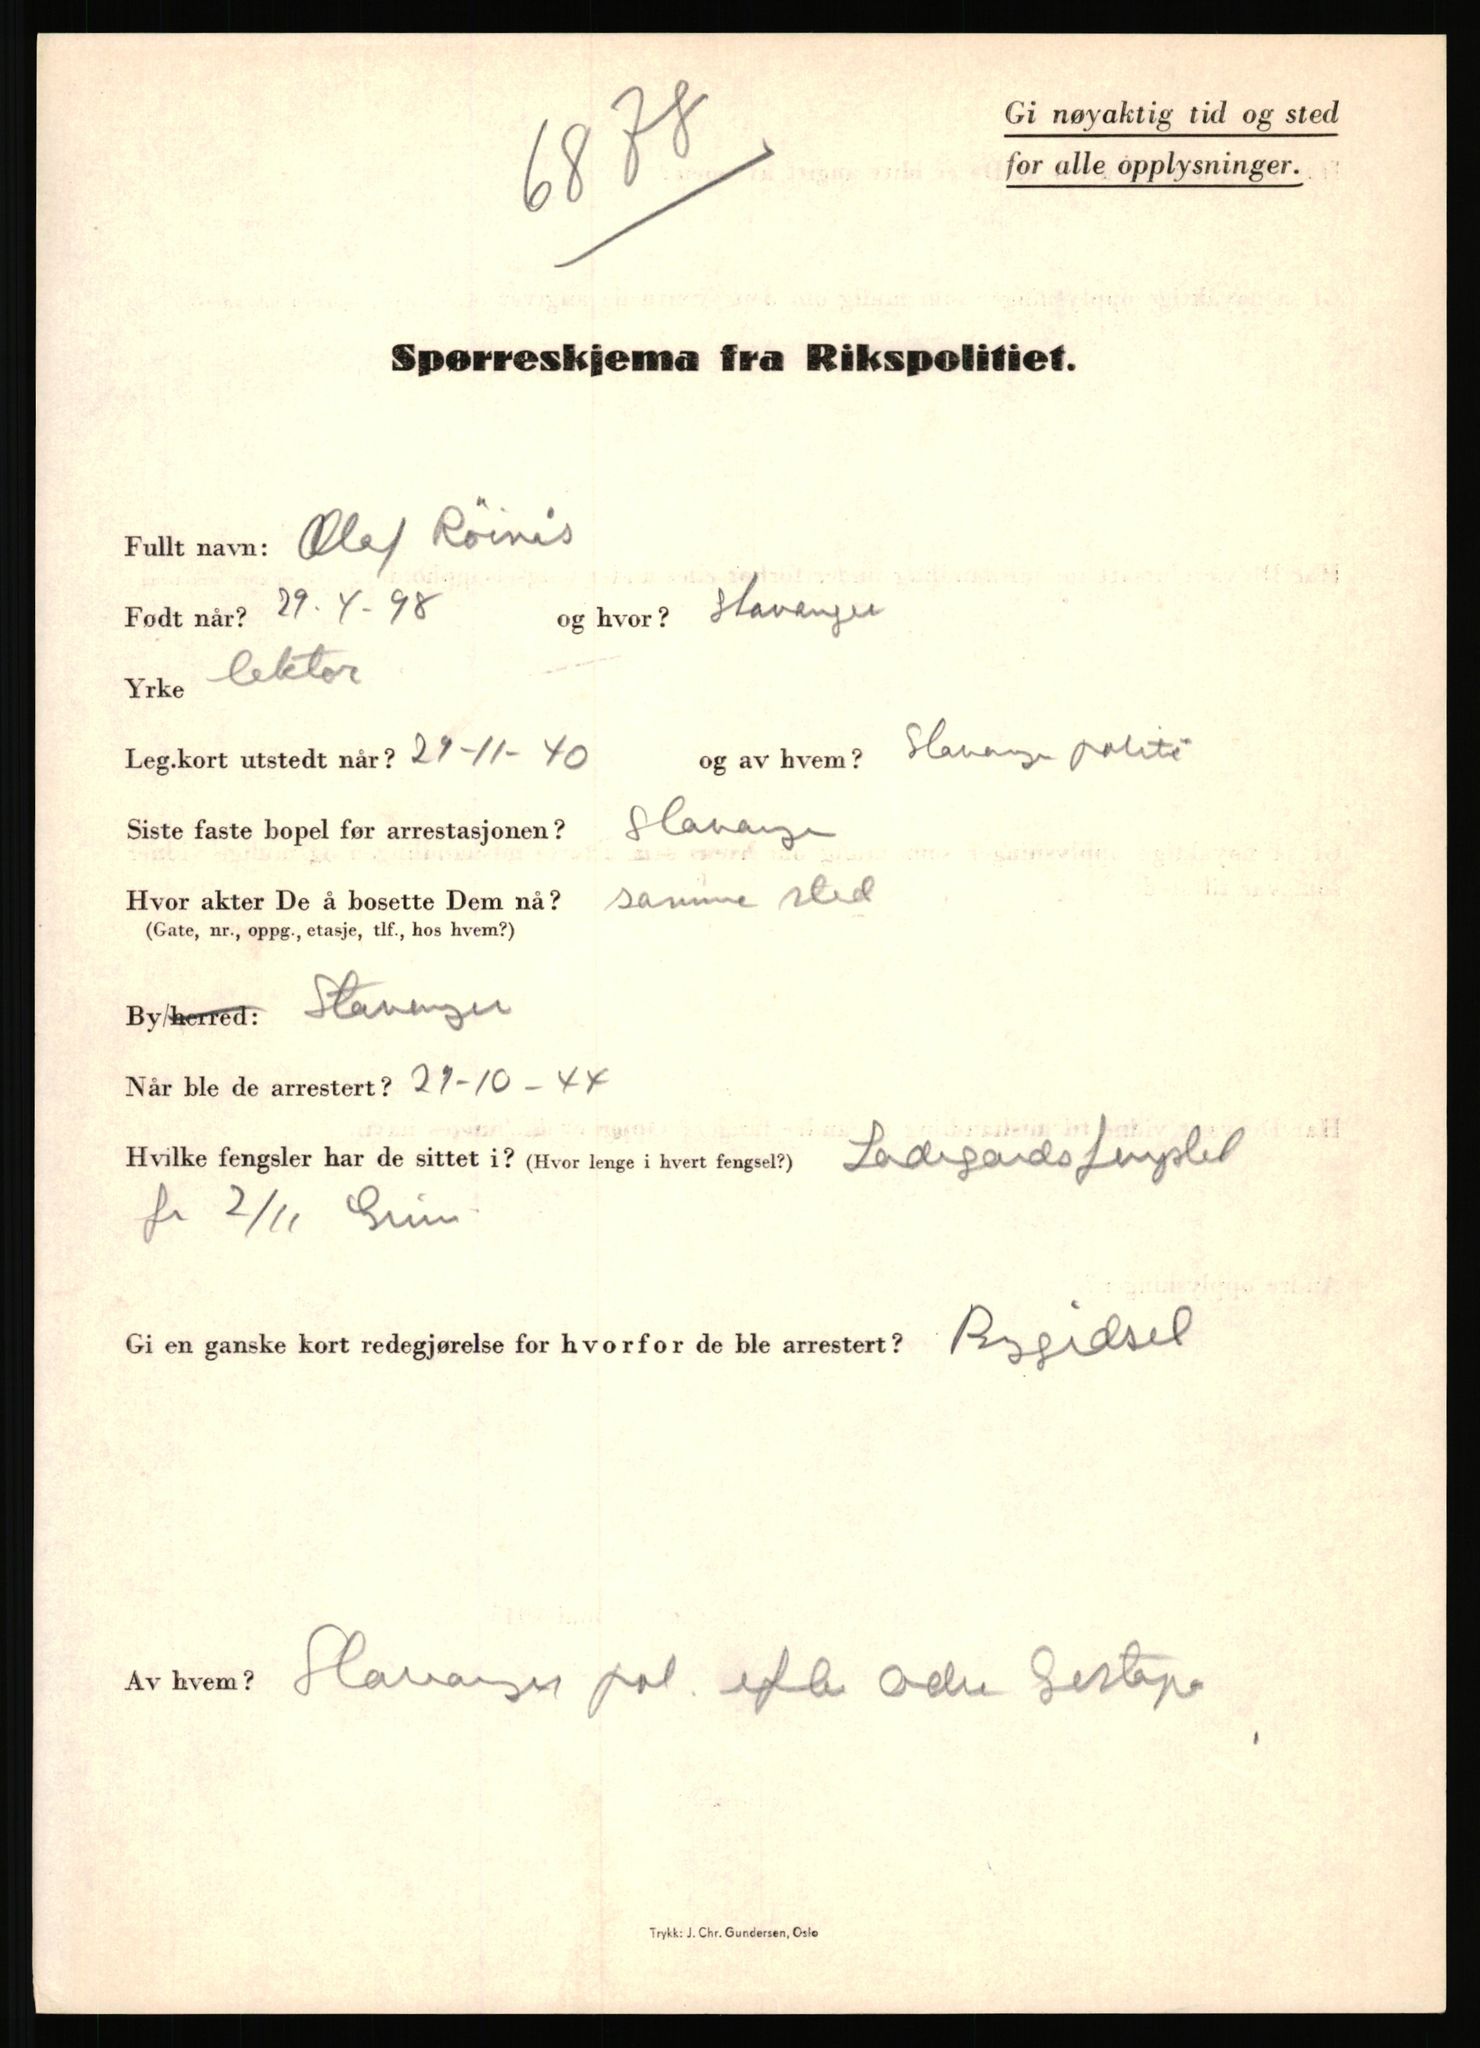 6878
Gi nøyaktig tid og sted
for alle opplysninger.
Spørreskjema fra Rikspolitiet.
Fullt navn: Olaf
Født når? 29-4-98 og hvor? Stavanger
Yrke lektor
Leg.kort utstedt når? 29-11-40 og av hvem? Stavanger politi
Siste faste bopel før arrestasjonen? Stavanger
Hvor akter De å bosette Dem nå? samme sted
(Gate, nr., oppg., etasje, tlf., hos hvem?)
By/herred: Stavanger
Når ble de arrestert? 29-10-44
Hvilke fengsler har de sittet i? (Hvor lenge i hvert fengsel?) Ladegaards fengslet
fr 2/11 Grini
Gi en ganske kort redegjørelse for hvorfor de ble arrestert? Bygidsel
Av hvem? Stavanger pol. efter ordre Gestapo
Trykk: J. Chr. Gundersen, Oslo